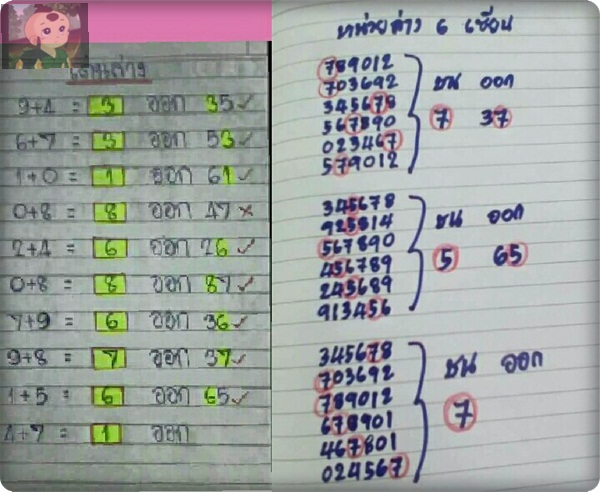 เลขล่าง
9+4 = 3 ออก 35 ✓
6+7 = 3 ออก 53 ✓
1+0 = 1 ออก 61 ✓
0+8 = 8 ออก 47 ×
2+4 = 6 ออก 26 ✓
0+8 = 8 ออก 87 ✓
7+9 = 6 ออก 36 ✓
9+8 = 7 ออก 37 ✓
1+5 = 6 ออก 65 ✓
4+7 = 1 ออก
หน่วยล่าง 6 เซียน
789012
703692
345678
567890
023467
579012
ชน ออก
7 37
345678
925814
567890
456789
245689
913456
ชน ออก
5 65
345678
703692
789012
678901
467801
024567
ชน ออก
7